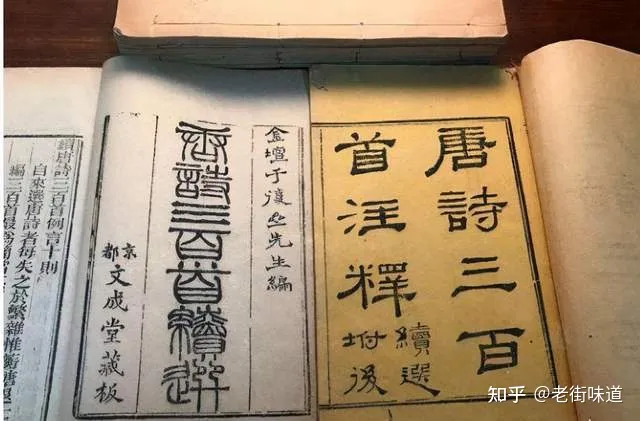 唐詩三百
首注釋
續選
坿後
金壇于復㞢先生編
唐詩三百首續選
京都文成堂藏板
續唐詩三百首例言十則
自來選唐詩者每失之於繁雜惟衡唐
編三百首最為簡當
知乎 @老街味道